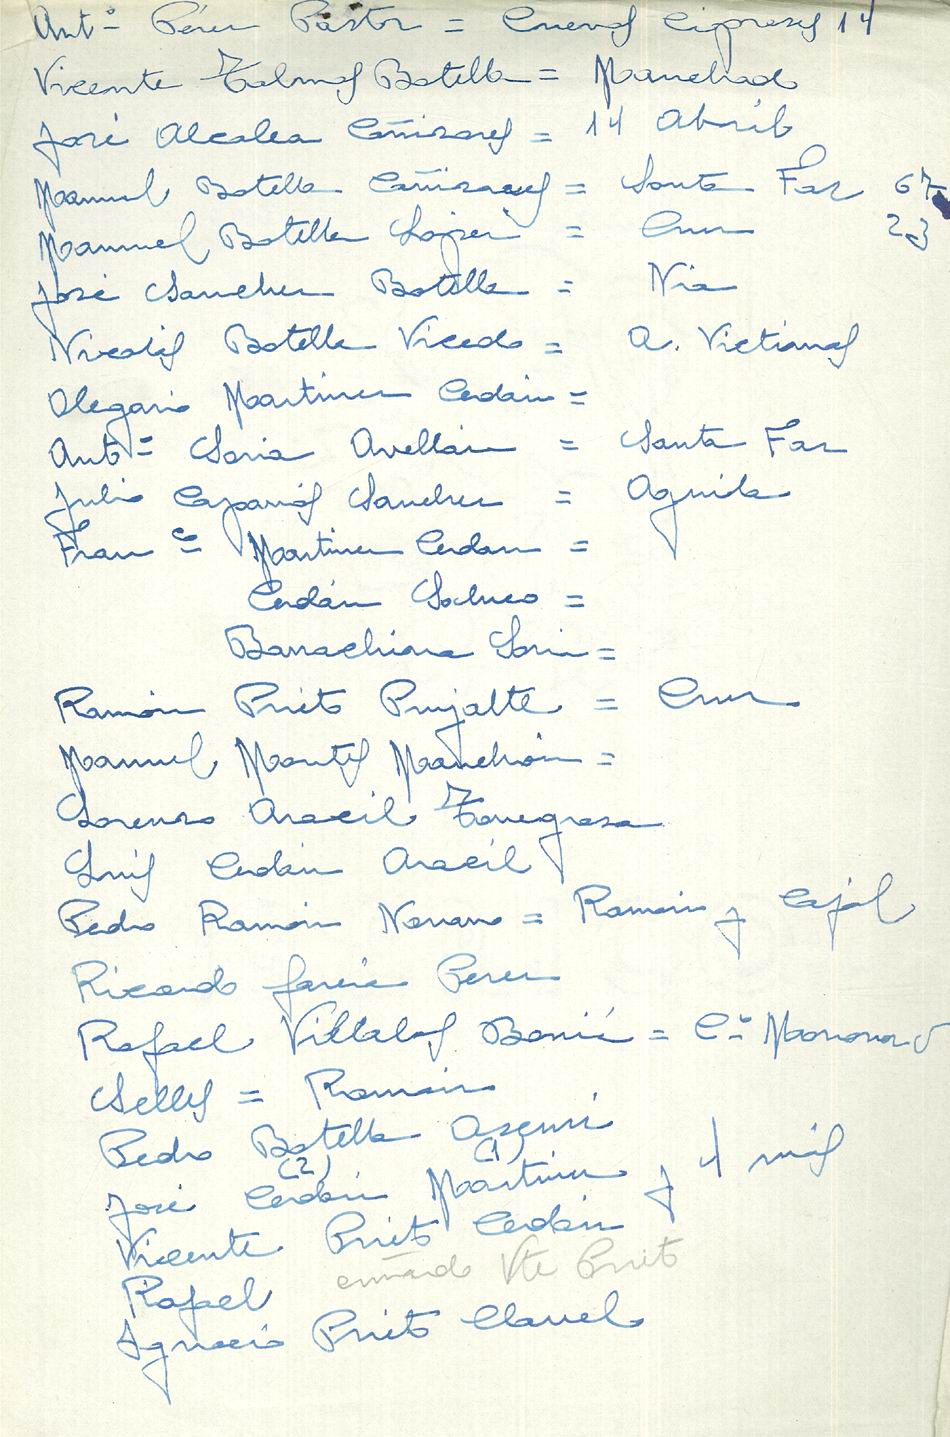 Antº = Pérez Pastor = Cuevas Cipreses 14
Vicente Talmas Botella = Manchado
José Alcolea Cañizares = 14 Abril
Manuel Botella Cañizares = Santa Faz 67
Manuel Botella López = Cruz 23
José Sanchez Botella = Nia
Nicolás Botella Vicedo = A. Victimas
Olegario Martinez Cerdán =
Antº = Soria Avellán = Santa Faz
Julio Caparrós Sanchez = Aguila
Franco = Martinez Cerdan =
Cerdán =
Barrachina Soria =
Ramón Prieto Pujalte = Cruz
Manuel Montes Manchón =
Lorenzo Aracil Torregrosa
Luis Cerdán Aracil
Pedro Ramón Navarro = Ramón y Cajal
Ricardo García Perez
Rafael Villalas = Cº =
Selles = Ramón
Pedro Botella Asensi
(2) (1)
José Cerdán Martinez y 4 más
Vicente Prieto Cerdán
Rafael cuñado Vte Prieto
Ignacio Prieto Clavel